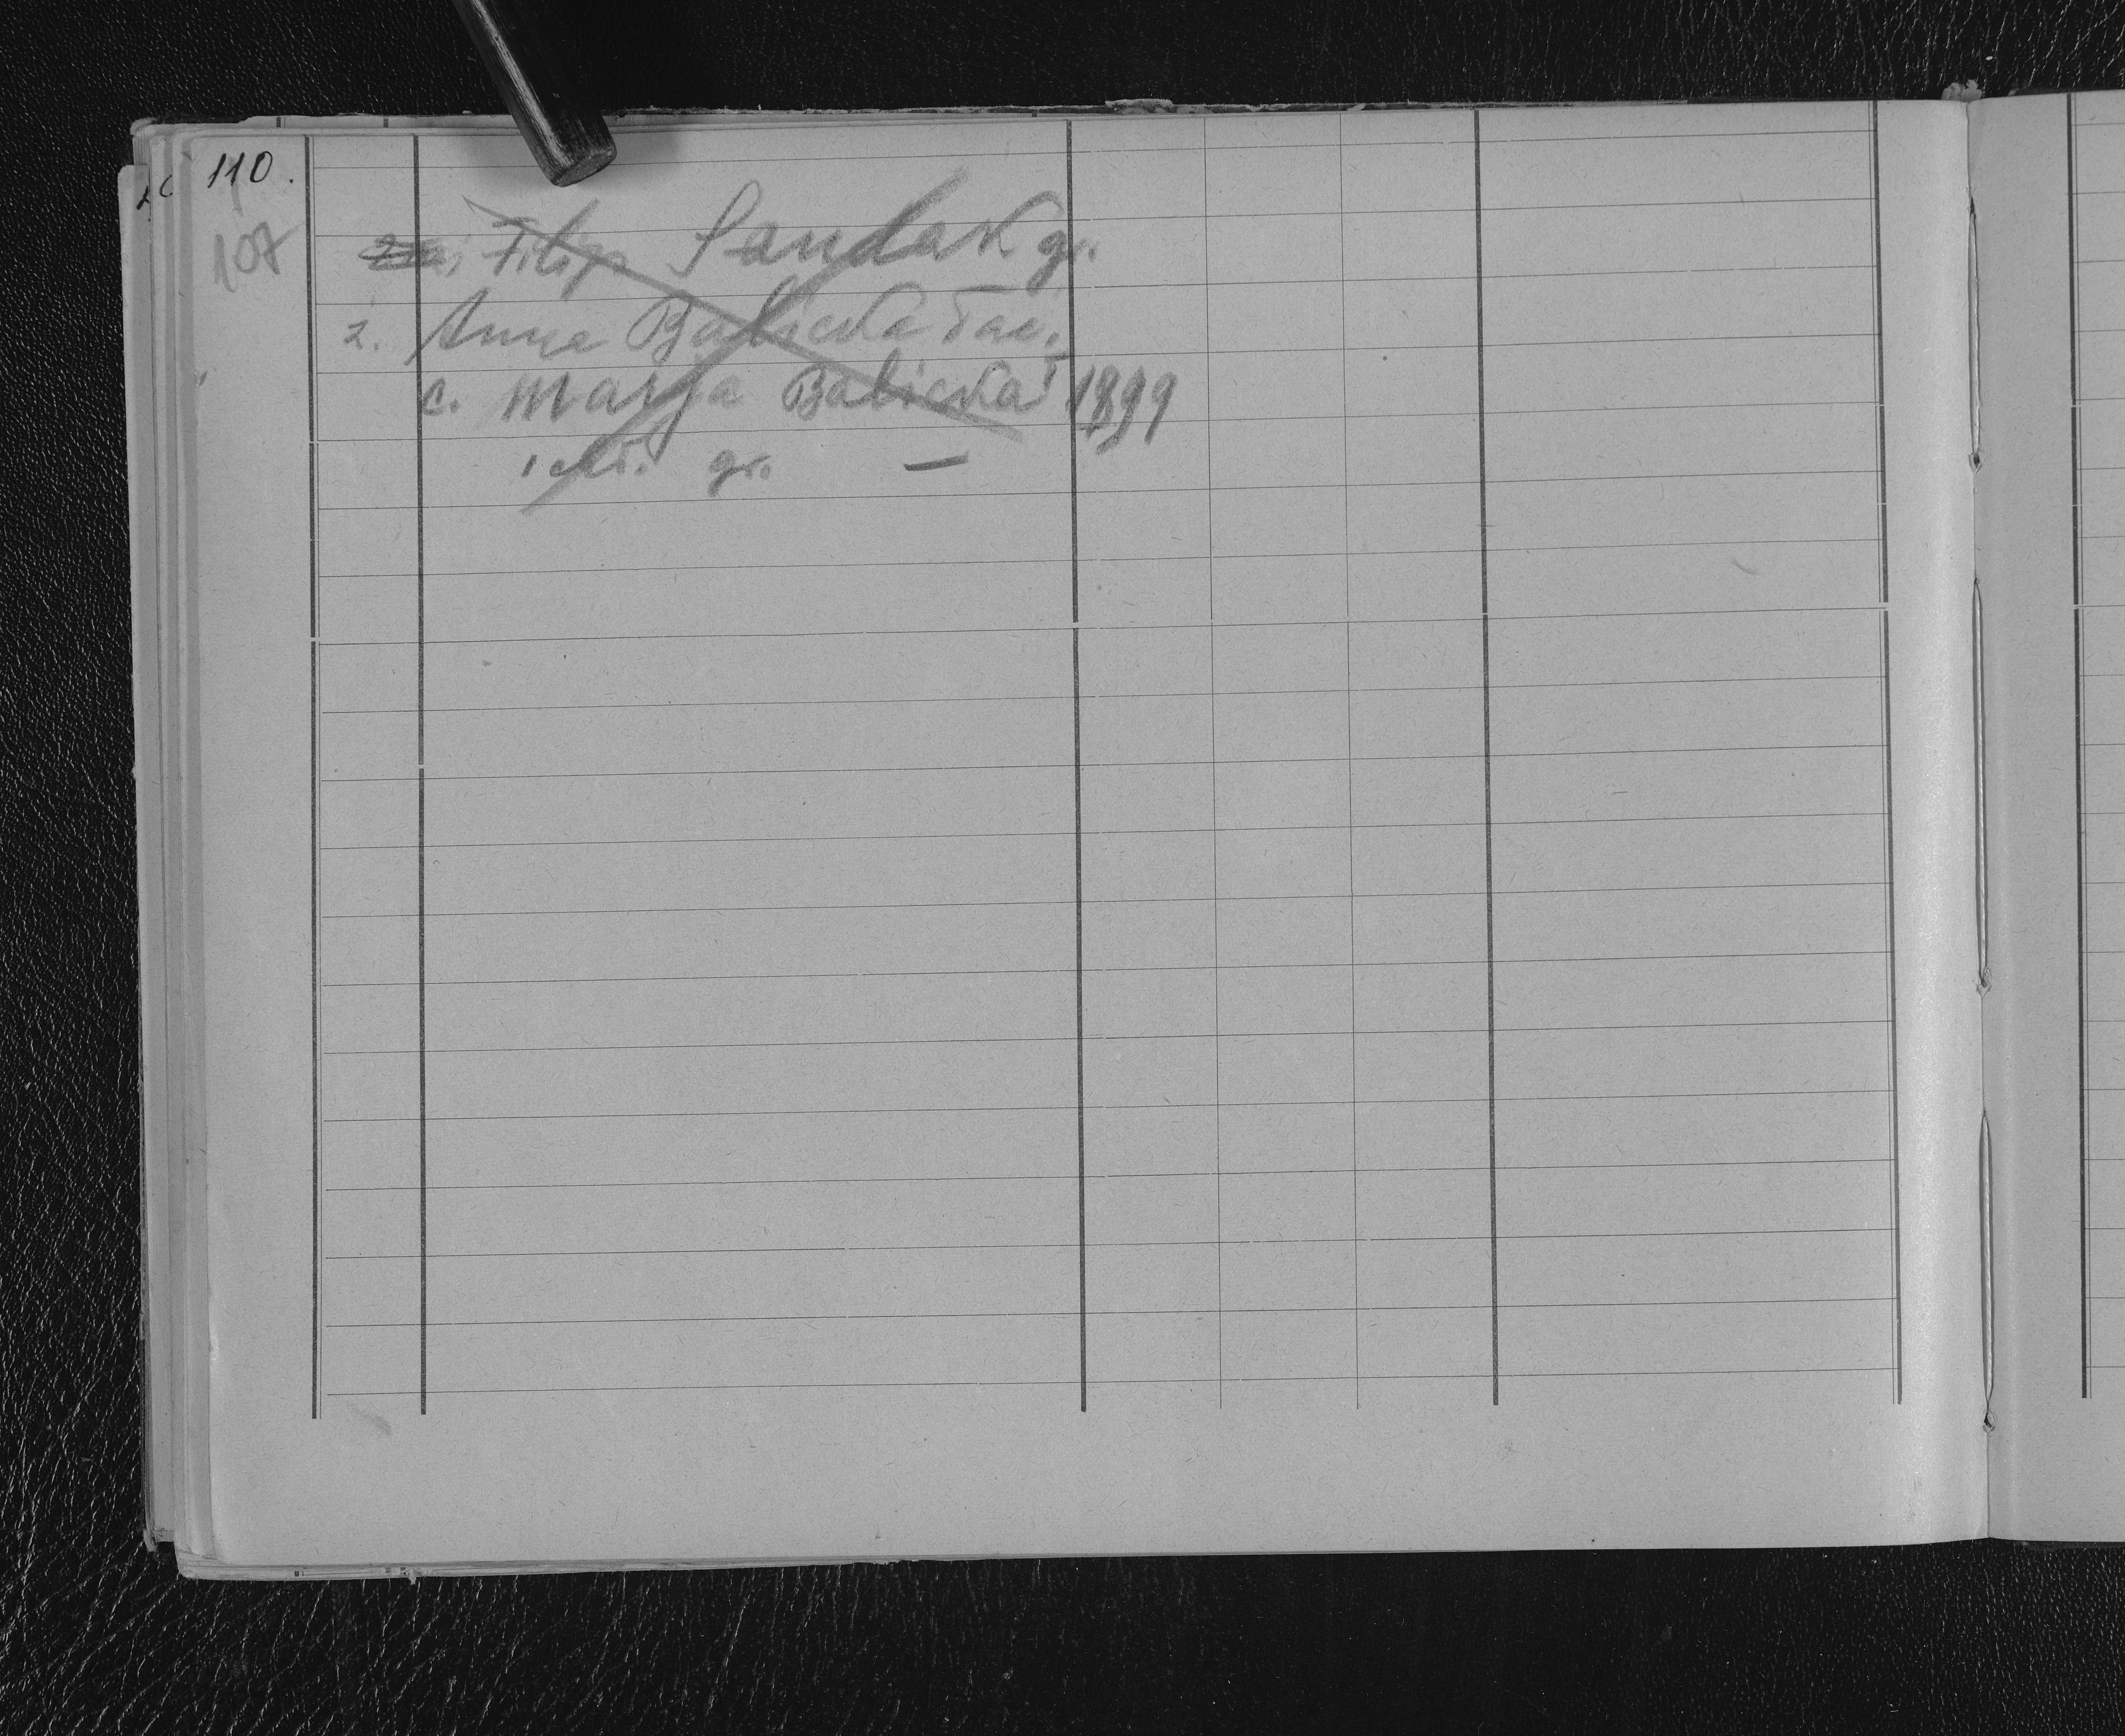 110.
107
Filip Sandak gr.
2. Anna Babicka łac.
c. Marja Babicka 1899
gr. —